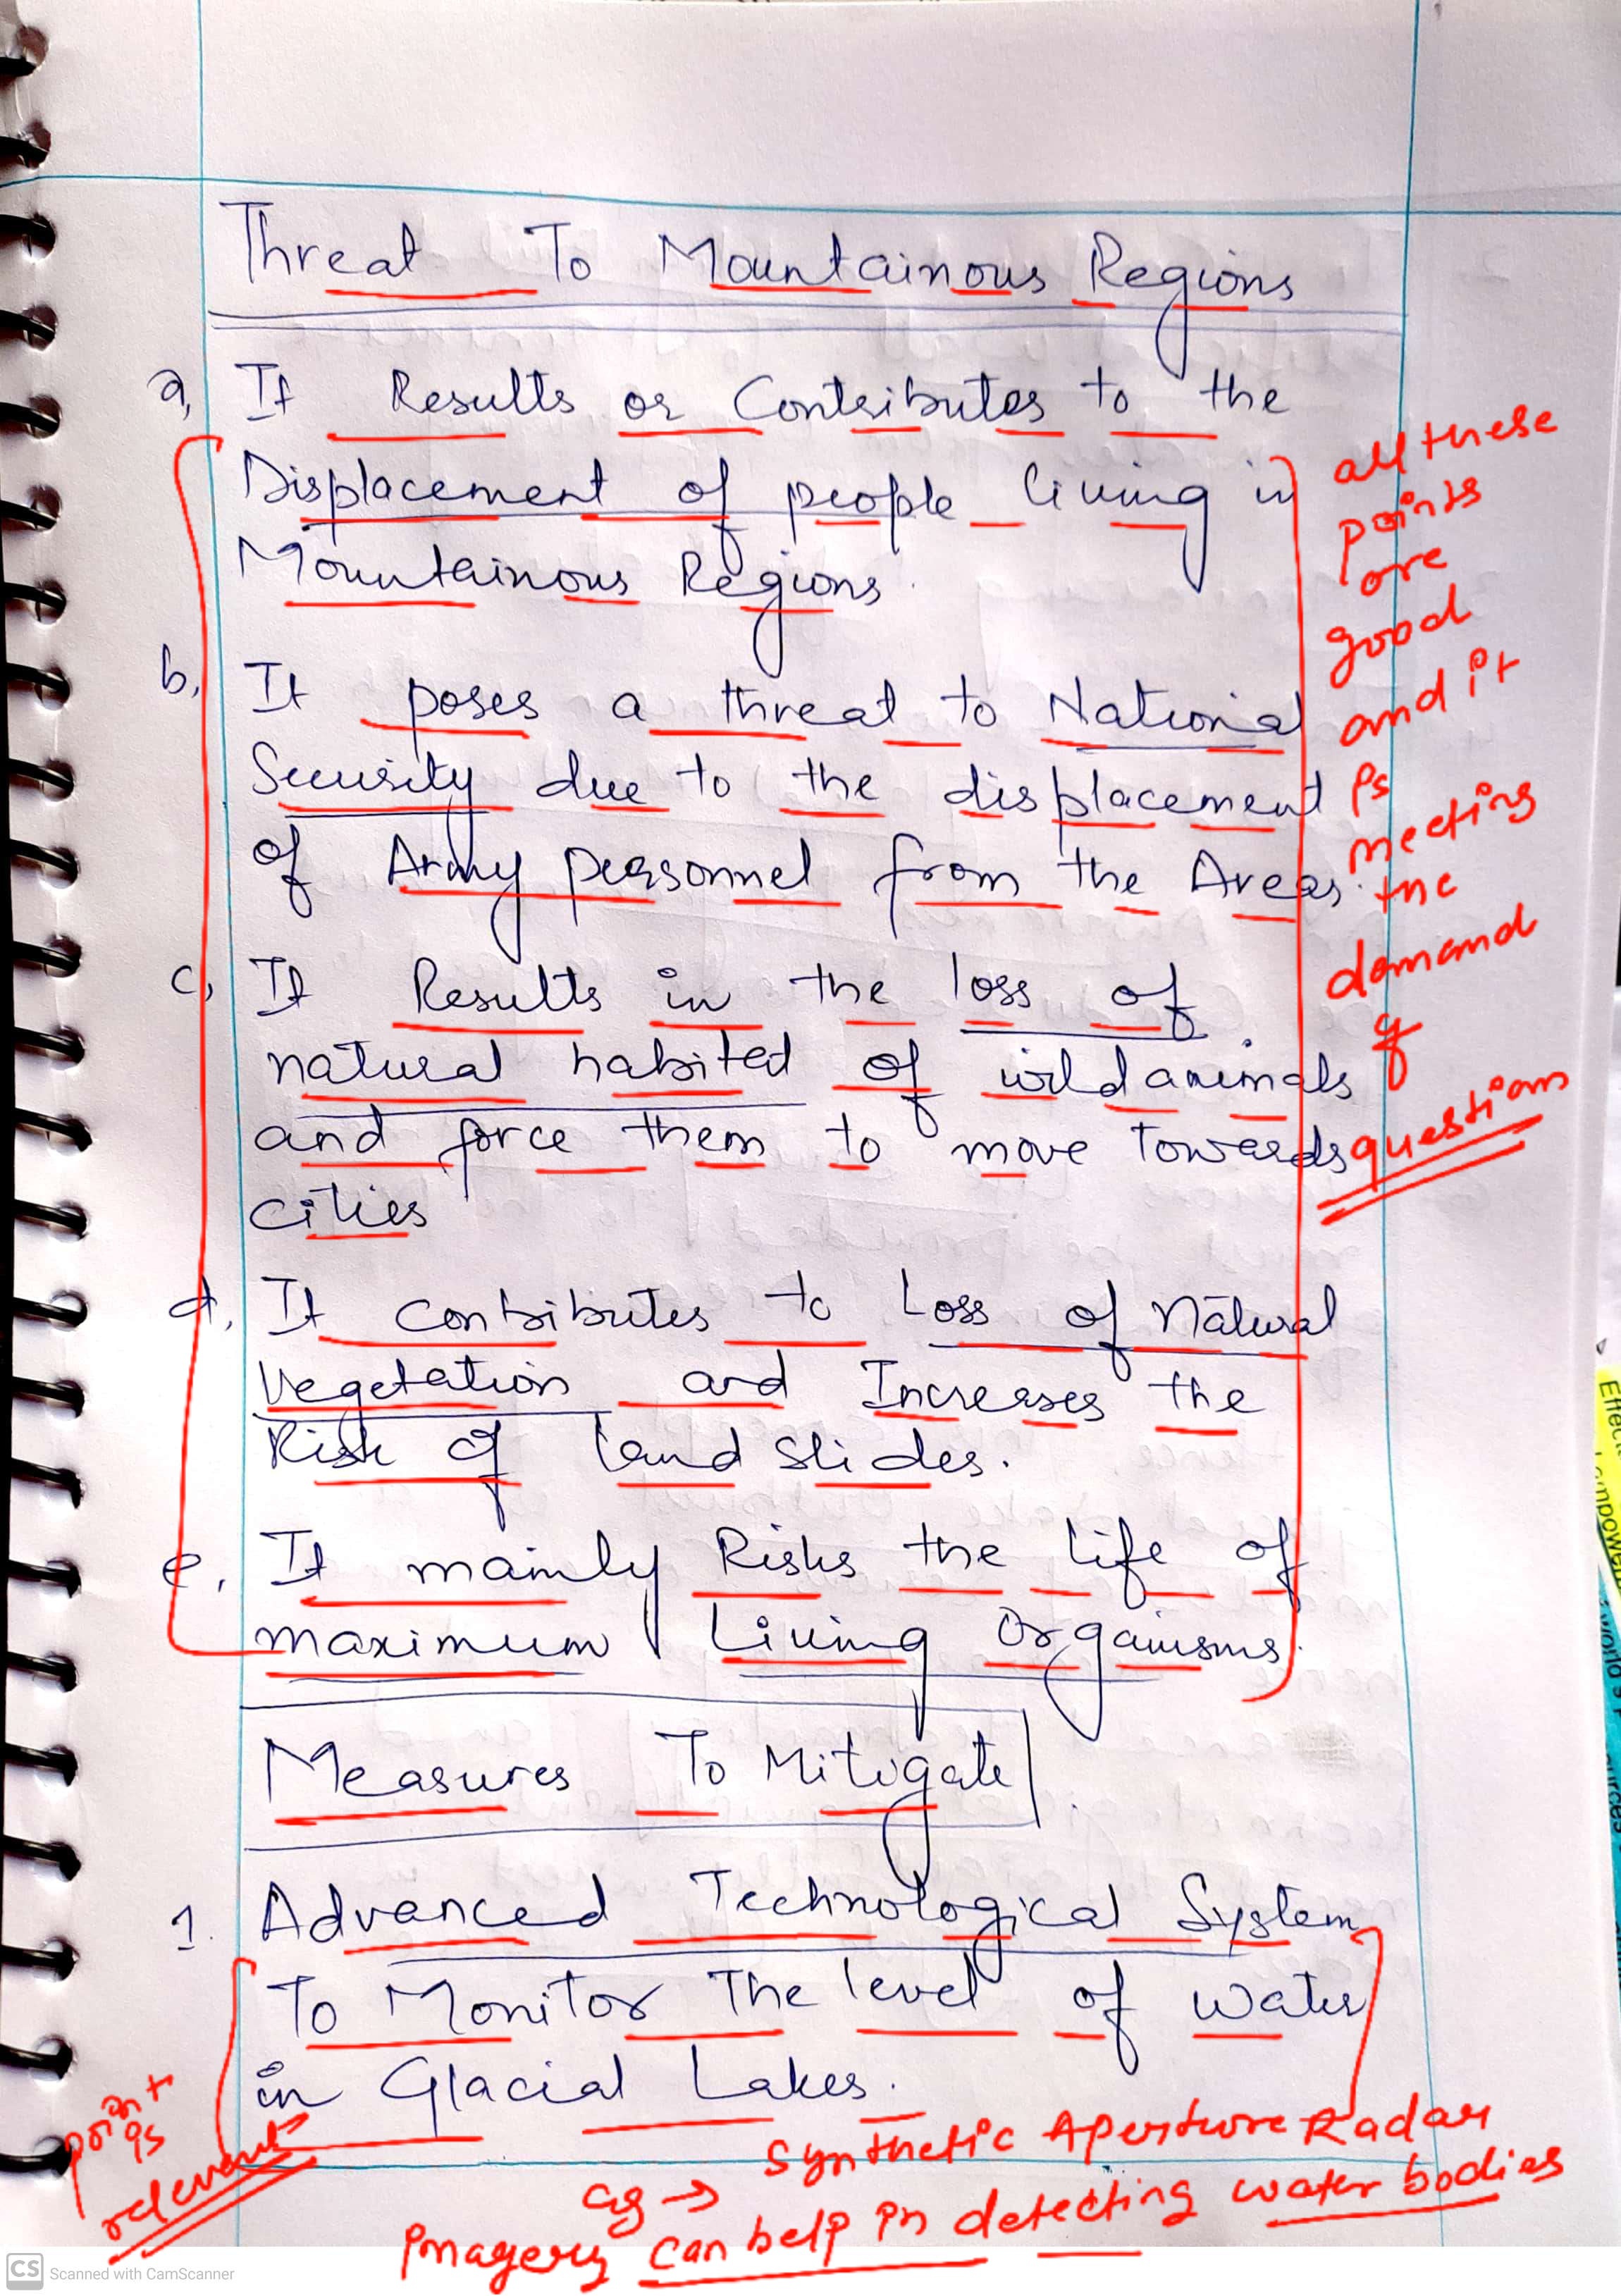 Threat To Mountainous Regions
a, It Results or Contributes to the
Displacement of people living in
Mountainous Regions.
b, It poses a threat to National
Security due to the displacement
of Army personnel from the Areas.
c, It Results in the loss of
natural habited of wild animals
and force them to move towards
cities
d, It contributes to Loss of Natural
Vegetation and Increases the
Risk of land slides.
e, It mainly Risks the life of
maximum Living Organisms.
all these
points
are
good
and it
is
meeting
the
demand
of
question
Measures To Mitigate
1. Advanced Technological System
To Monitor The level of water
in Glacial Lakes.
point
is
relevant
eg → Synthetic Aperture Radar
imagery can help in detecting water bodies
CS Scanned with CamScanner